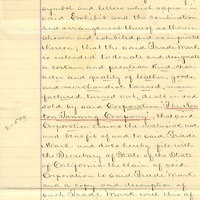 symbol and letters which appear in
said Exhibit and the combination
and arrangement thereof as therein
shown and exhibited and as imprinted
thereon; that the said Trade Mark
is intended to denote and designate
a certain and peculiar kind, char-
acter and quality of leather goods,
and merchandise tanned, man-
ufactured, turned out, dealt in and
sold by said Corporation, The
Tanning Company, that said
Corporation claims the exclusive use
and benefit of and to said Trade
Mark and does hereby file with
the Secretary of State of the State
of California the claim of said
Corporation to said Trade Mark
and a copy and description of
such Trade Mark with this af-